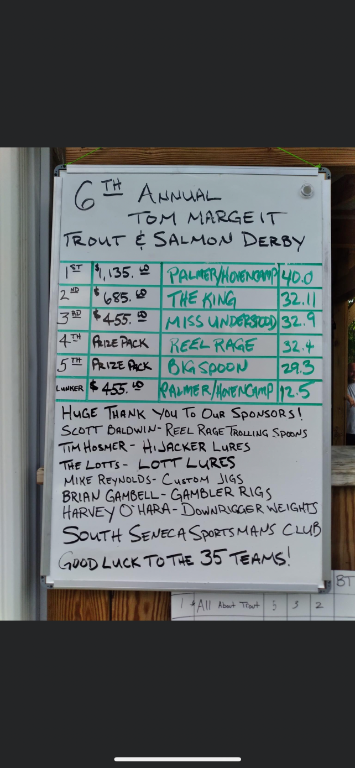 6TH ANNUAL
TOM MARGEIT
TROUT & SALMON DERBY
1ST $1,135.00 PALMER/HOVENCAMP 40.0
2ND $685.00 THE KING 32.11
3RD $455.00 MISS UNDERSTOOD 32.9
4TH PRIZE PACK REEL RAGE 32.4
5TH PRIZE PACK BIG SPOON 29.3
LUNKER $455.00 PALMER/HOVENCAMP 12.5
HUGE THANK YOU TO OUR SPONSORS!
SCOTT BALDWIN- REEL RAGE TROLLING SPOONS
TIM HOSMER- HIJACKER LURES
THE LOTTS- LOTT LURES
MIKE REYNOLDS- CUSTOM JIGS
BRIAN GAMBELL- GAMBLER RIGS
HARVEY O'HARA- DOWNRIGGER WEIGHTS
SOUTH SENECA SPORTSMANS CLUB
GOOD LUCK TO THE 35 TEAMS!
BT
1 All About Trout 3 2